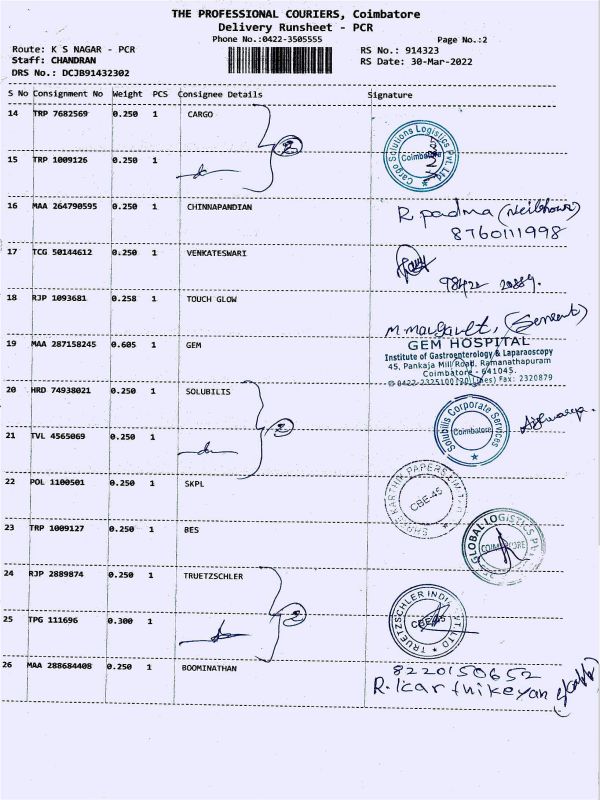 THE PROFESSIONAL COURIERS, Coimbatore
Delivery Runsheet - PCR
Phone No.:0422-3505555
Page No.:2
Route: K S NAGAR - PCR
RS No.: 914323
Staff: CHANDRAN
RS Date: 30-Mar-2022
DRS No.: DCJB91432302
S No Consignment No Weight PCS Consignee Details Signature
14 TRP 7682569 0.250 1 CARGO
2
Cargo Solutions Logistics Pvt. Ltd.
Coimbatore
15 TRP 1009126 0.250 1
16 MAA 264790595 0.250 1 CHINNAPANDIAN
R. padma (Neibhour)
8760111998
17 TCG 50144612 0.250 1 VENKATESWARI
18 RJP 1093681 0.258 1 TOUCH GLOW
M. margaret, (Servent)
19 MAA 287158245 0.605 1 GEM
GEM HOSPITAL
Institute of Gastroenterology & Laparaoscopy
45, Pankaja Mill Road, Ramanathapuram
Coimbatore - 641045.
0422-2325100 (20 Lines) Fax: 2320879
20 HRD 74938021 0.250 1 SOLUBILIS
2
Solubilis Corporate Services
Coimbatore
21 TVL 4565069 0.250 1
22 POL 1100501 0.250 1 SKPL
KARTHIK PAPERS LIMITED
CBE-45
23 TRP 1009127 0.250 1 BES
GLOBAL LOGISTICS
24 RJP 2889874 0.250 1 TRUETZSCHLER
2
TRUETZSCHLER
CBE-45
25 TPG 111696 0.300 1
26 MAA 288684408 0.250 1 BOOMINATHAN
8220150652
R. Karthikeyan